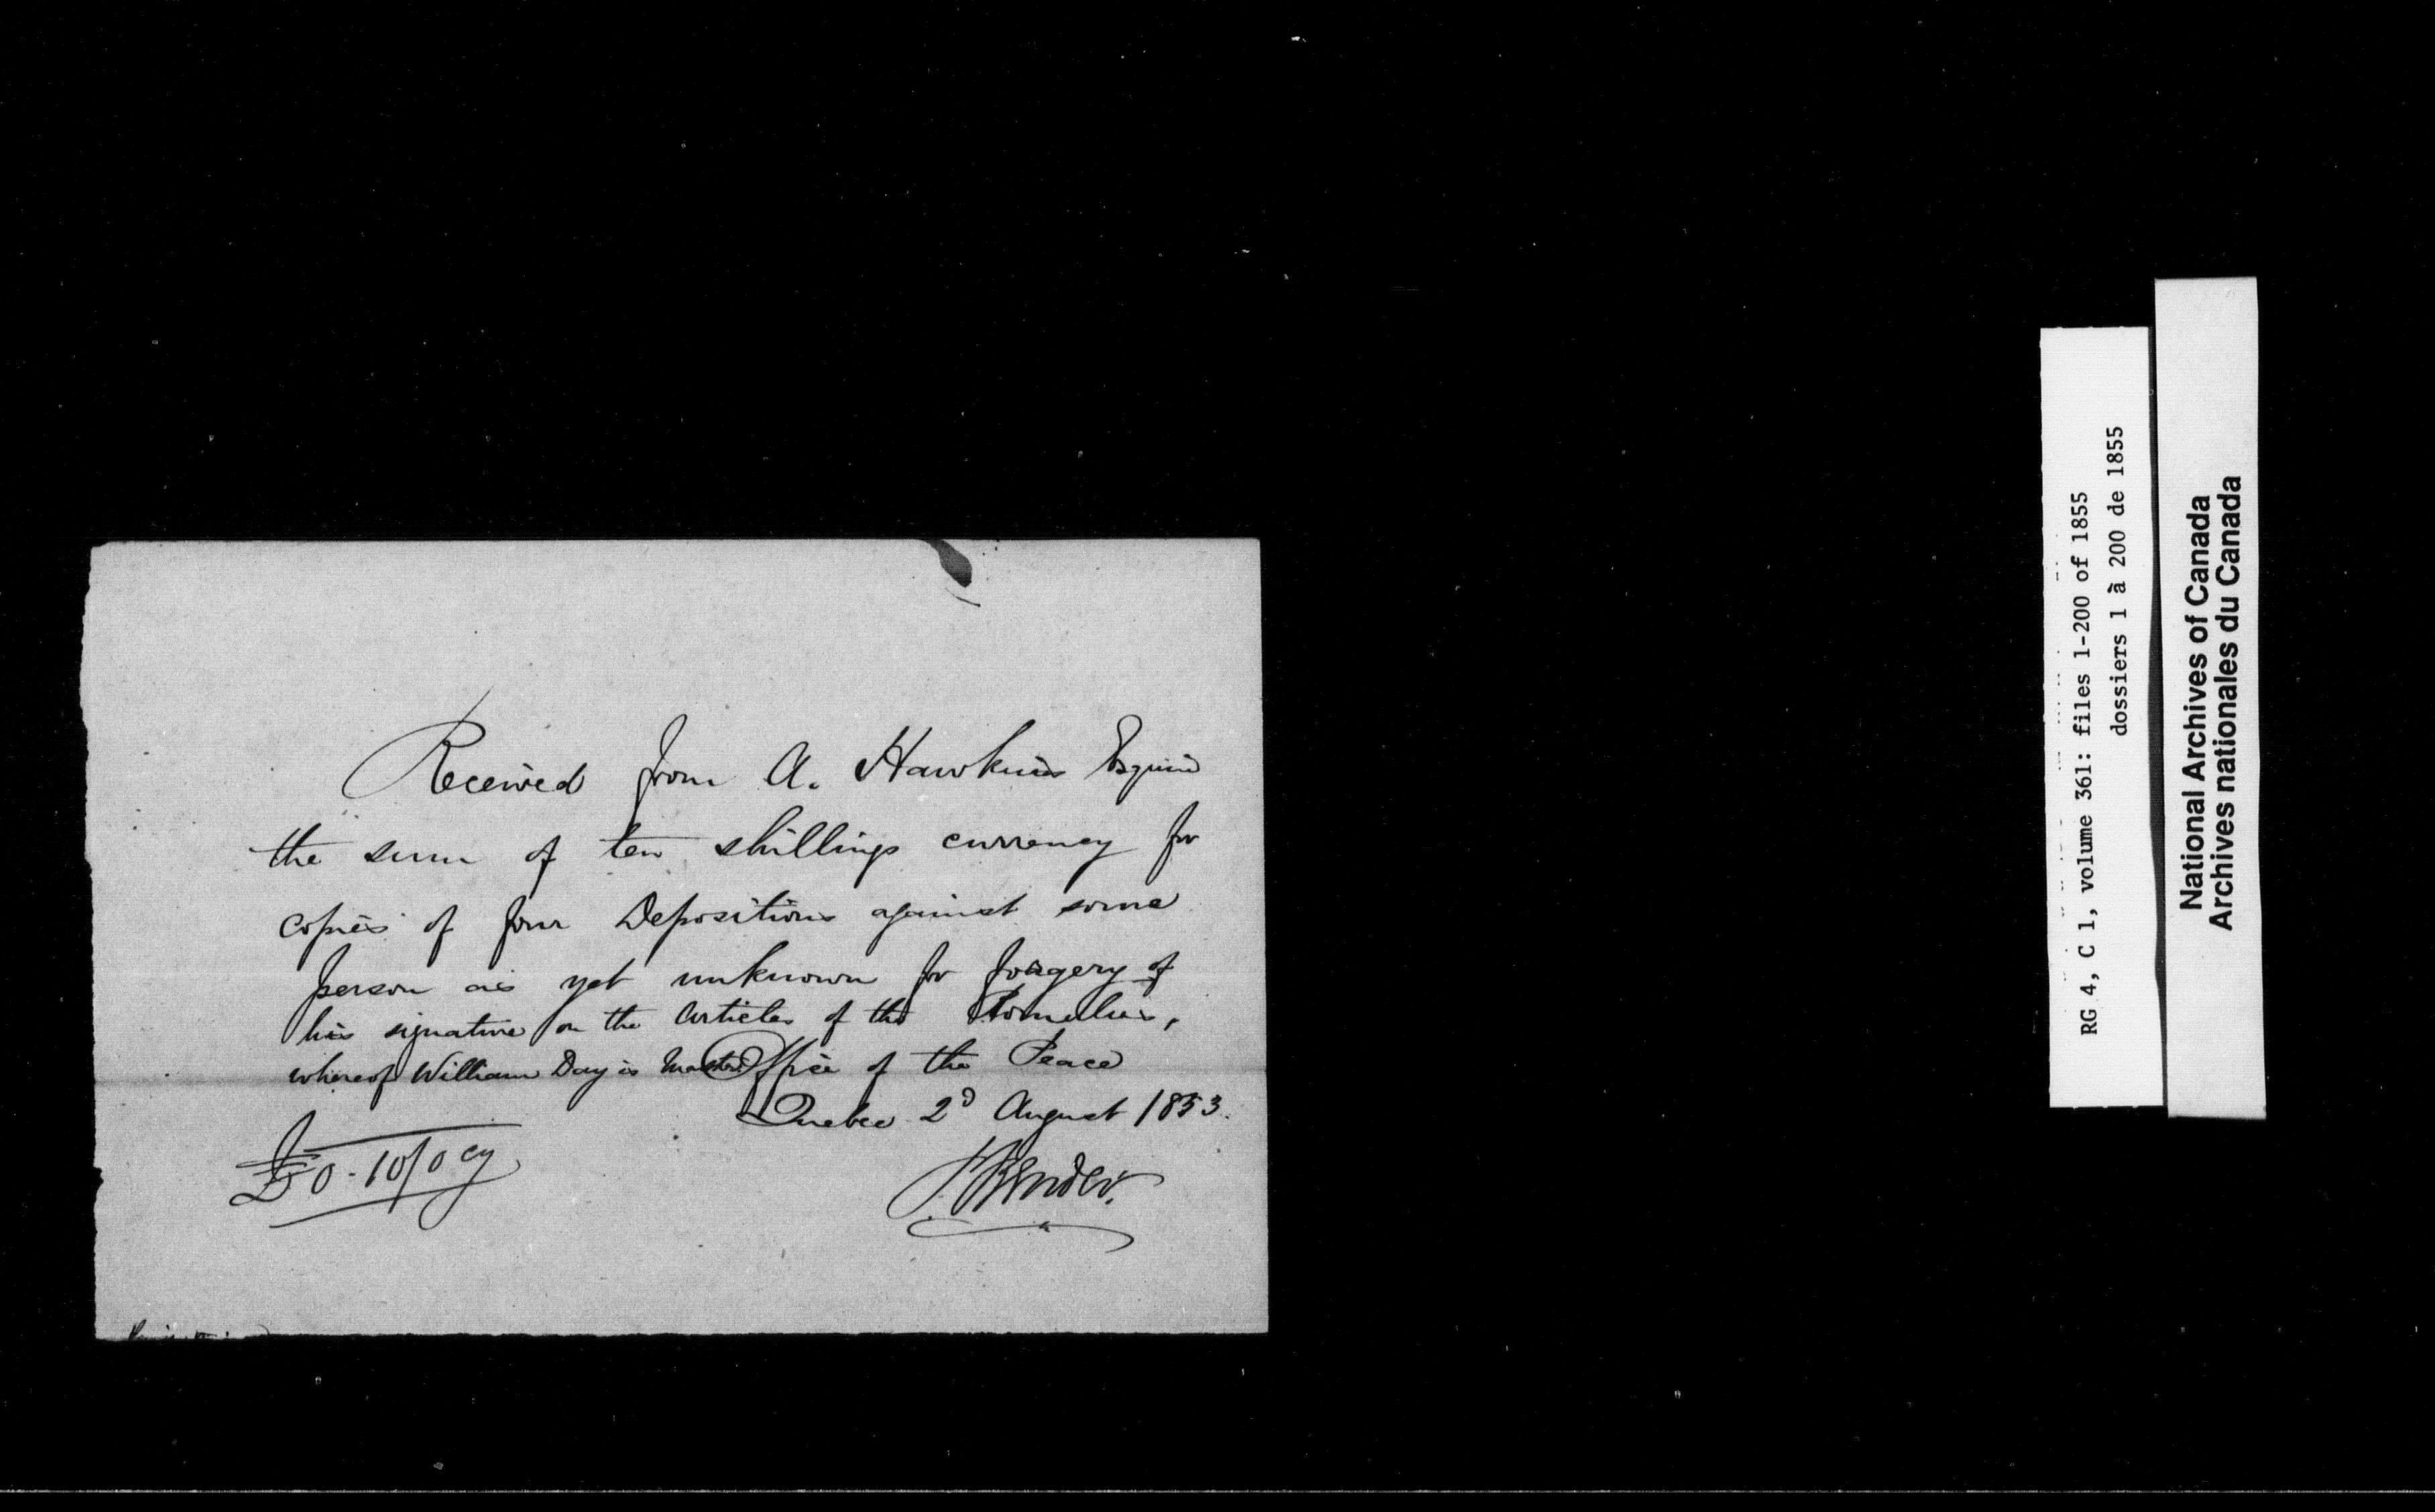 Received from A. Hawkins Esquire
the sum of ten shillings currency for
copies of four Depositions against some
person as yet unknown for forgery of
his signature on the articles of the
whereof William Day is Master. Office of the Peace
Quebec 2d August 1853.
£0-10/0 cy
Bender.
RG 4, C 1, volume 361: files 1-200 of 1855
dossiers 1 à 200 de 1855
National Archives of Canada
Archives nationales du Canada